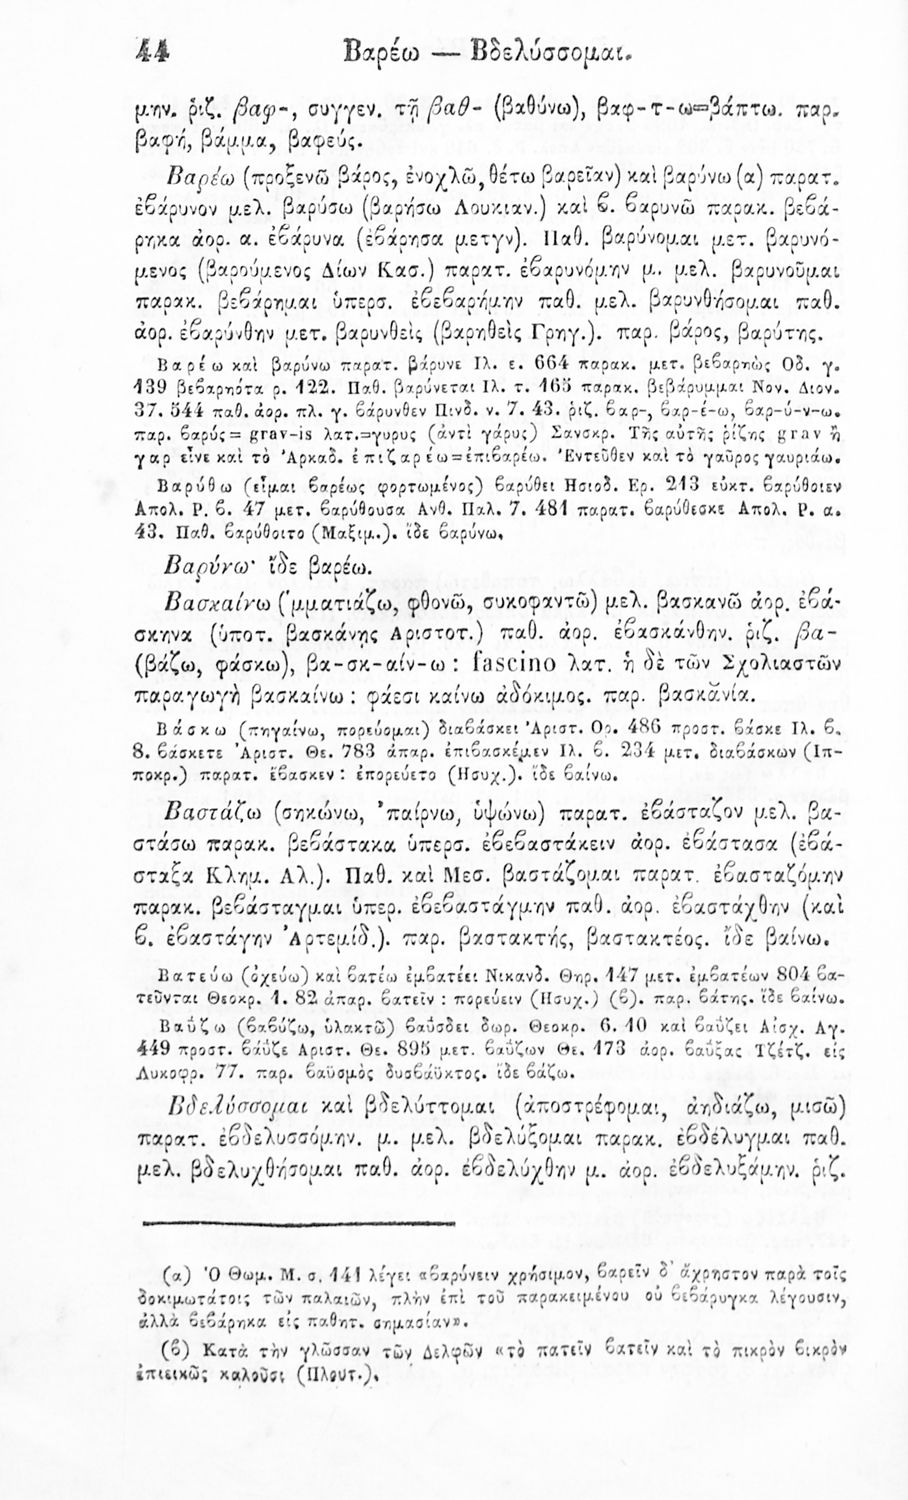 44 Βαρέω — Βδελύσσομαι.
μην. ῥιζ. βαφ-, συγγεν. τῇ βαθ- (βαθύνω), βαφ-τ-ω=βάπτω. παρ.
βαφή, βάμμα, βαφεύς.
Βαρέω (προξενῶ βάρος, ἐνοχλῶ, θέτω βαρεῖαν) καὶ βαρύνω (α) παρατ.
ἐβάρυνον μελ. βαρύσω (βαρήσω Λουκιαν.) καὶ ϐ. ϐαρυνῶ παρακ. βεϐά-
ρηκα ἀορ. α. ἐϐάρυνα (ἐϐάρησα μετγν). Παθ. βαρύνομαι μετ. βαρυνό-
μενος (βαρούμενος Δίων Κασ.) παρατ. ἐϐαρυνόμην μ. μελ. βαρυνοῦμαι
παρακ. βεϐάρημαι ὑπερσ. ἐϐεϐαρήμην παθ. μελ. βαρυνθήσομαι παθ.
ἀορ. ἐϐαρύνθην μετ. βαρυνθεὶς (βαρηθεὶς Γρηγ.). παρ. βάρος, βαρύτης.
Βαρέω καὶ βαρύνω παρατ. βάρυνε Ιλ. ε. 664 παρακ. μετ. βεϐαρηὼς Οδ. γ.
139 βεϐαρηότα ρ. 122. Παθ. βαρύνεται Ιλ. τ. 165 παρακ. βεϐάρυμμαι Νον. Διον.
37. 544 παθ. ἀορ. πλ. γ. ϐάρυνθεν Πινδ. ν. 7. 43. ῥιζ. ϐαρ-, ϐαρ-έ-ω, ϐαρ-ύ-ν-ω.
παρ. ϐαρύς = grav-is λατ.=γυρυς (ἀντὶ γάρυς) Σανσκρ. Τῆς αὐτῆς ῥίζης grav ἢ
γαρ εἶνε καὶ τὸ Ἀρκαδ. ἐπιζαρέω=ἐπιϐαρέω. Ἐντεῦθεν καὶ τὸ γαῦρος γαυριάω.
Βαρύθω (εἶμαι ϐαρέως φορτωμένος) ϐαρύθει Ησιοδ. Ερ. 213 εὐκτ. ϐαρύθοιεν
Απολ. Ρ. ϐ. 47 μετ. ϐαρύθουσα Ανθ. Παλ. 7. 481 παρατ. ϐαρύθεσκε Απολ. Ρ. α.
43. Παθ. ϐαρύθοιτο (Μαξιμ.). ἴδε ϐαρύνω.
Βαρύνω· ἴδε βαρέω.
Βασκαίνω (’μματιάζω, φθονῶ, συκοφαντῶ) μελ. βασκανῶ ἀορ. ἐϐά-
σκηνα (ὑποτ. βασκάνῃς Αριστοτ.) παθ. ἀορ. ἐϐασκάνθην. ῥιζ. βα-
(βάζω, φάσκω), βα-σκ-αίν-ω : fascino λατ. ἡ δὲ τῶν Σχολιαστῶν
παραγωγὴ βασκαίνω : φάεσι καίνω ἀδόκιμος. παρ. βασκᾰνία.
Βάσκω (πηγαίνω, πορεύομαι) διαϐάσκει Ἀριστ. Ορ. 486 προστ. ϐάσκε Ιλ. ϐ.
8. ϐάσκετε Ἀριστ. Θε. 783 ἀπαρ. ἐπιϐασκέμεν Ιλ. ϐ. 234 μετ. διαϐάσκων (Ιπ-
ποκρ.) παρατ. ἔϐασκεν : ἐπορεύετο (Ησυχ.). ἴδε ϐαίνω.
Βαστάζω (σηκώνω, ’παίρνω, ὑψώνω) παρατ. ἐϐάσταζον μελ. βα-
στάσω παρακ. βεϐάστακα ὑπερσ. ἐϐεϐαστάκειν ἀορ. ἐϐάστασα (ἐϐά-
σταξα Κλημ. Αλ.). Παθ. καὶ Μεσ. βαστάζομαι παρατ. ἐϐασταζόμην
παρακ. βεϐάσταγμαι ὑπερ. ἐϐεϐαστάγμην παθ. ἀορ. ἐϐαστάχθην (καὶ
ϐ. ἐϐαστάγην Ἀρτεμίδ.). παρ. βαστακτής, βαστακτέος. ἴδε βαίνω.
Βατεύω (ὀχεύω) καὶ ϐατέω ἐμϐατέει Νικανδ. Θηρ. 147 μετ. ἐμϐατέων 804 ϐα-
τεῦνται Θεοκρ. 1. 82 ἀπαρ. ϐατεῖν : πορεύειν (Ησυχ.) (ϐ). παρ. ϐάτης. ἴδε ϐαίνω.
Βαΰζω (ϐαϐύζω, ὑλακτῶ) ϐαΰσδει δωρ. Θεοκρ. 6. 10 καὶ ϐαΰζει Αἰσχ. Αγ.
449 προστ. ϐάϋζε Αριστ. Θε. 895 μετ. ϐαΰζων Θε. 173 ἀορ. ϐαΰξας Τζέτζ. εἰς
Λυκοφρ. 77. παρ. ϐαϋσμὸς δυσϐάϋκτος. ἴδε ϐάζω.
Βδελύσσομαι καὶ βδελύττομαι (ἀποστρέφομαι, ἀηδιάζω, μισῶ)
παρατ. ἐϐδελυσσόμην. μ. μελ. βδελύξομαι παρακ. ἐϐδέλυγμαι παθ.
μελ. βδελυχθήσομαι παθ. ἀορ. ἐϐδελύχθην μ. ἀορ. ἐϐδελυξάμην. ῥιζ.
(α) Ὁ Θωμ. Μ. σ. 141 λέγει «ϐαρύνειν χρήσιμον, ϐαρεῖν δ’ ἄχρηστον παρὰ τοῖς
δοκιμωτάτοις τῶν παλαιῶν, πλὴν ἐπὶ τοῦ παρακειμένου οὐ ϐεϐάρυγκα λέγουσιν,
ἀλλὰ ϐεϐάρηκα εἰς παθητ. σημασίαν».
(ϐ) Κατὰ τὴν γλῶσσαν τῶν Δελφῶν «τὸ πατεῖν ϐατεῖν καὶ τὸ πικρὸν ϐικρὸν
ἐπιεικῶς καλοῦσι (Πλουτ.).